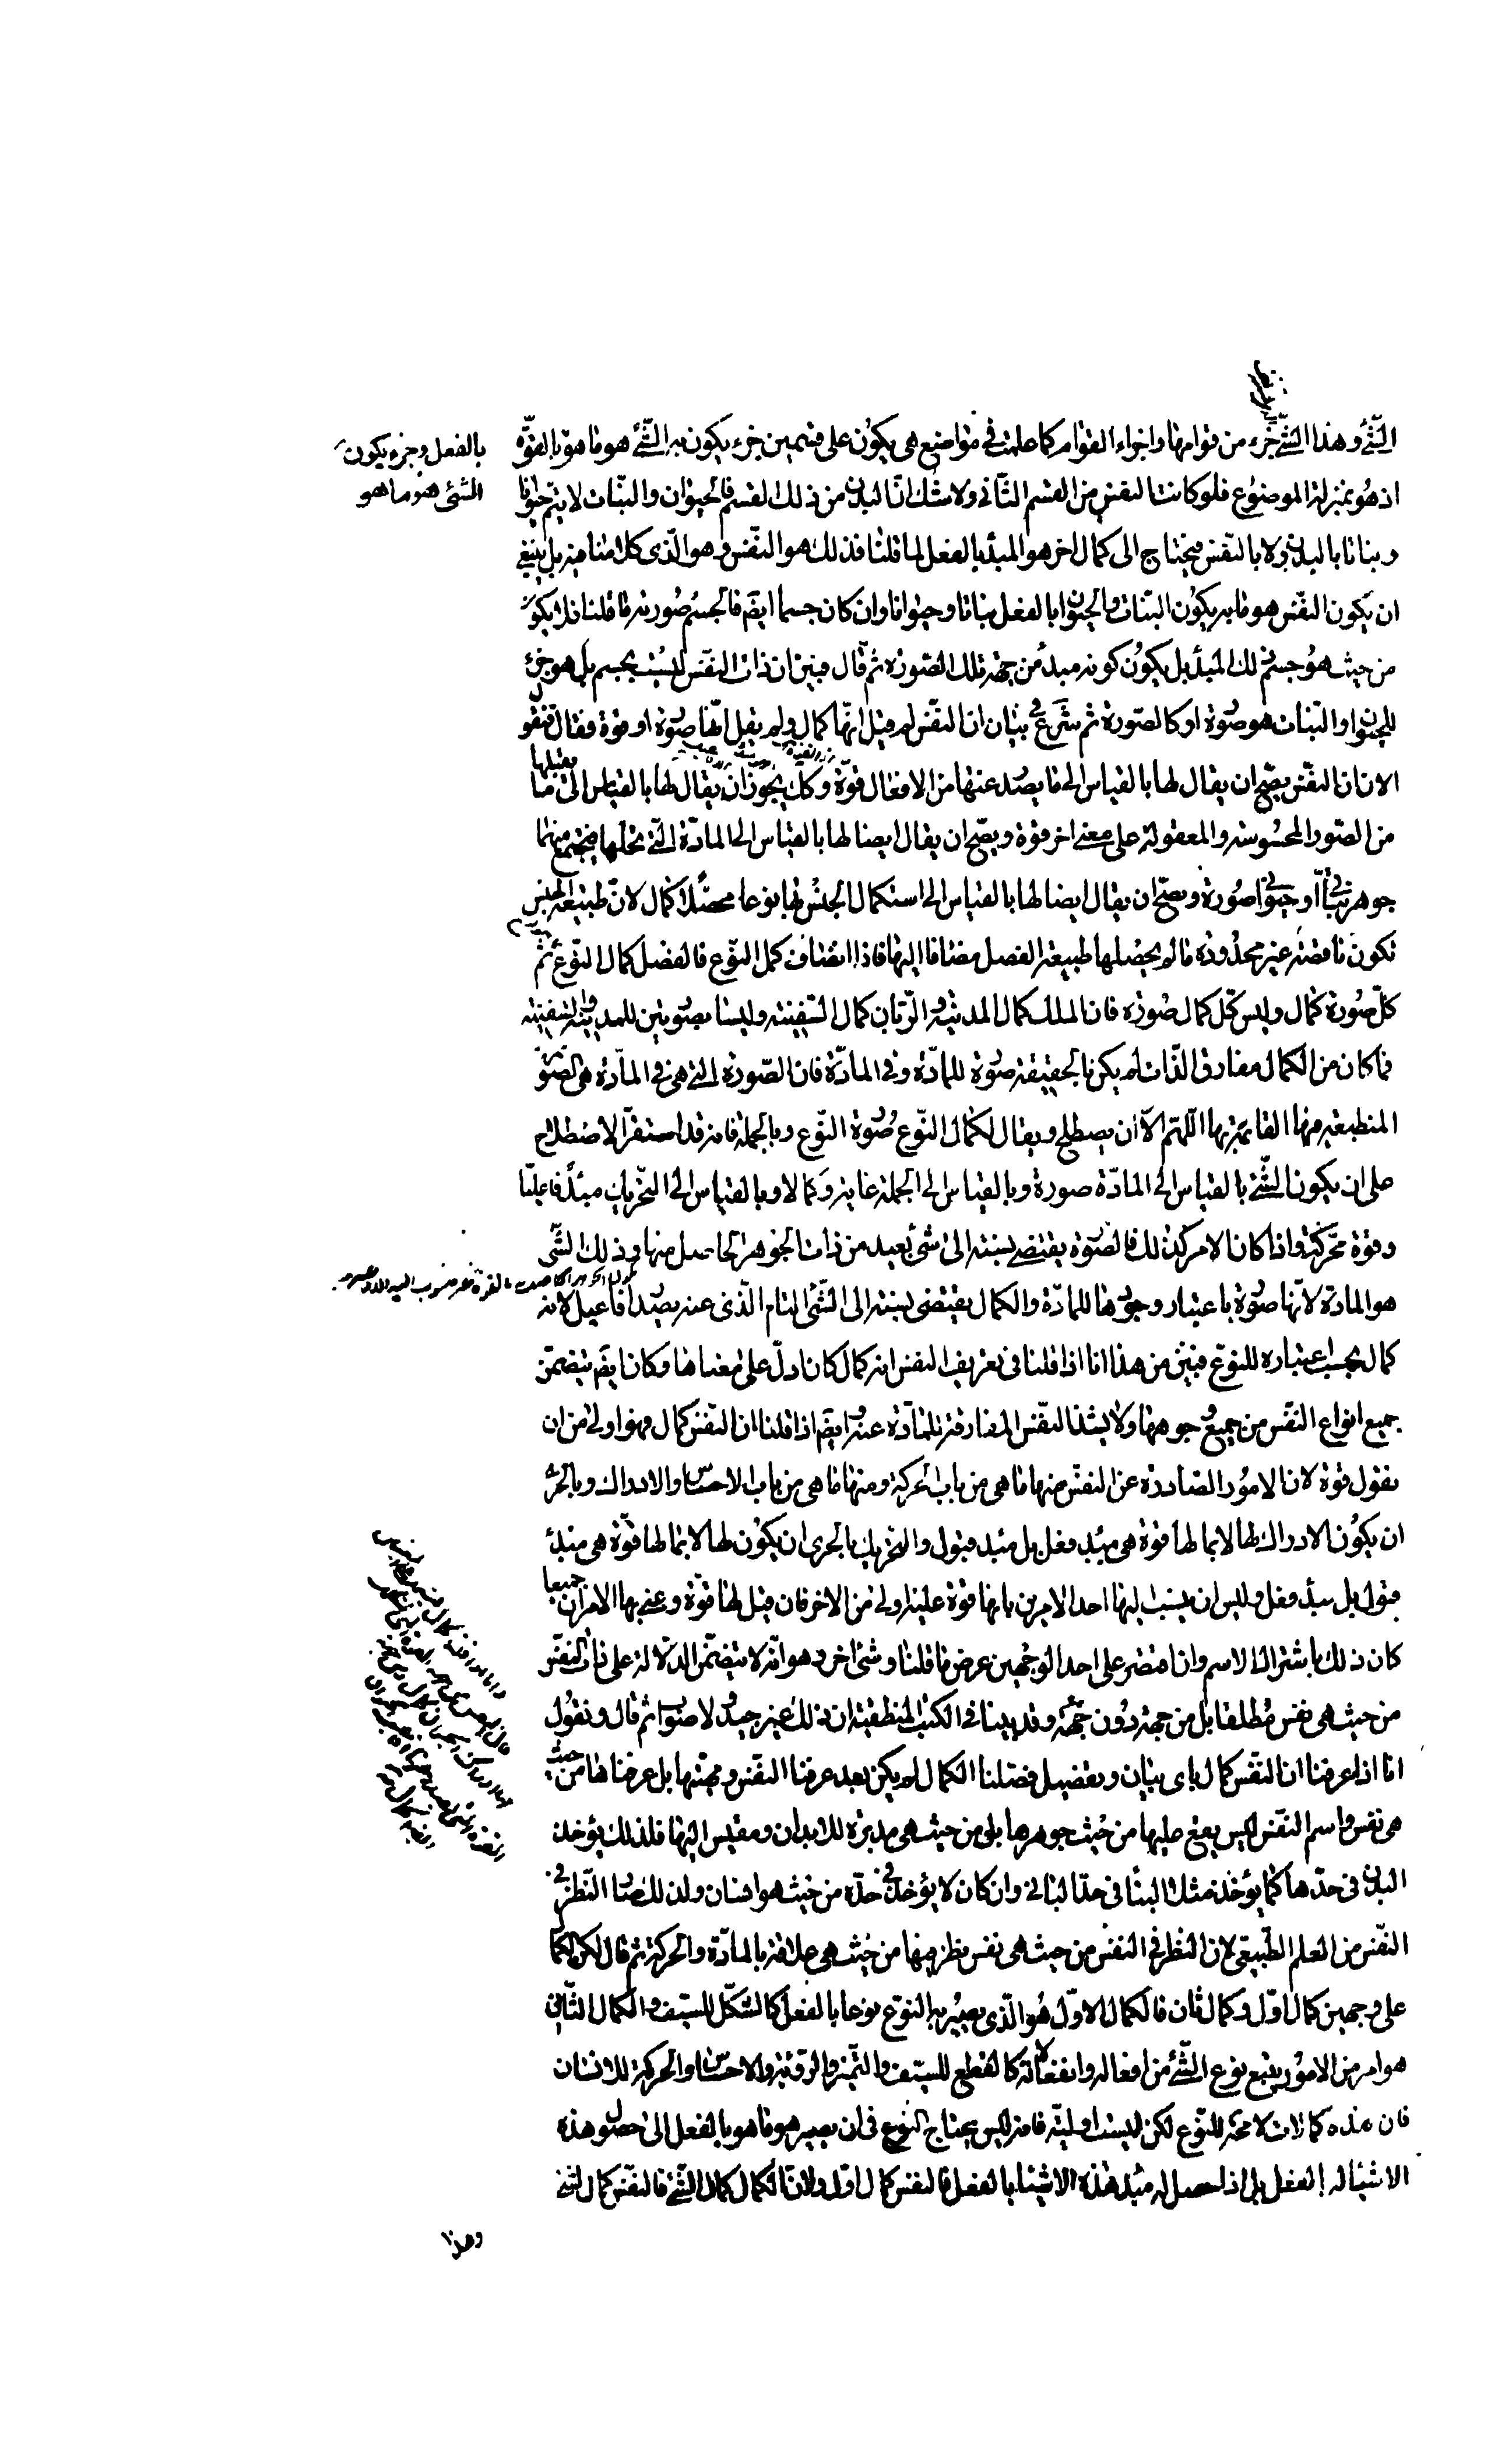 الشئ وهذا الشئ جزء من قوامها واجزاء القوام كما علمت فى مواضع هى يكون على قسمين جزء يكون به الشئ هو ما هو بالقوة
بالفعل وجزء يكون
الشئ هو ما هو
اذ هو بمنزلة الموضوع فلو كانت النفس من القسم الثانى ولا شك ان البدن من ذلك القسم فالحيوان والنبات لا يتم حيوانا
ونباتا بالبدن ولا بالنفس فيحتاج الى كمال اخر هو المبدأ بالفعل لما قلنا فذلك هو النفس وهو الذى كلامنا فيه بل ينبغى
ان يكون النفس هو ما به يكون النبات والحيوان بالفعل نباتا وحيوانا وان كان جسما ايضم فالجسم صورته ما قلنا فلا يكون
من حيث هو جسم ذلك المبدأ بل يكون كونه مبدأ من جهة تلك الصورة ثم قال فبين ان ذات النفس ليست بجسم بل هو جزء
للحيوان والنبات هو صورة او كالصورة ثم شرع فى بيان ان النفس لم قيل انها كمال ولم يقل انها صورة او قوة فقال فنقول
الان ان النفس يصح ان يقال لها بالقياس الى ما يصدر عنها من الافعال قوة وكك يجوز ان يقال لها بالقياس الى ما يقبلها
من الصور المحسوسة والمعقولة على معنى اخر قوة ويصح ان يقال ايضا لها بالقياس الى المادة التى تحلها فيجتمع منهما
جوهر نباتى او حيوانى صورة ويصح ان يقال ايضا لها بالقياس الى استكمال الجنس بها نوعا محصلا كمال لان طبيعة الجنس
تكون ناقصة غير محدودة ما لم يحصلها طبيعة الفصل مضافا اليها فاذا انضاف كمل النوع فالفصل كمال النوع ثم
كل صورة كمال وليس كل كمال صورة فان الملك كمال المدينة والربان كمال السفينة وليسا بصورتين للمدينة والسفينة
فما كان من الكمال مفارق الذات لم يكن بالحقيقة صورة للمادة وفى المادة فان الصورة التى هى فى المادة هى الصورة
المنطبعة فيها القائمة بها اللهم الا ان يصطلح ويقال لكمال النوع صورة النوع وبالجملة فانه قد استقر الاصطلاح
على ان يكون الشئ بالقياس الى المادة صورة وبالقياس الى الجملة غاية وكمالا وبالقياس الى التحريك مبدأ فاعليا
وقوة محركة واذا كان الامر كذلك فالصورة يقتضى نسبته الى شئ بعيد من ذات الجوهر الحاصل منها وذلك الشئ
هو المادة لانها صورة باعتبار وجودها للمادة والكمال يقتضى نسبته الى الشئ التام الذى عنه يصدر الافاعيل لانه
كمال بحسب اعتباره للنوع فبين من هذا انا اذا قلنا فى تعريف النفس انه كمال كان ادل على معناها وكان ايضم يتضمن
جميع انواع النفس من جميع وجوهها ولا يشذ النفس المفارقة للمادة عنه وايضم اذا قلنا ان النفس كمال فهو اولى من ان
نقول قوة لان الامور الصادرة عن النفس منها ما هى من باب الحركة ومنها ما هى من باب الاحساس والادراك وبالحرى
ان يكون الادراك لها لا بما لها قوة هى مبدء فعل بل مبدء قبول والتحريك بالحرى ان يكون لها لا بما لها قوة هى مبدء
قبول بل مبدأ فعل وليس ان ينسب اليها احد الامرين بانها قوة عليه اولى من الاخر فان قيل لها قوة وعنى بها الامران جميعا
كان ذلك باشتراك الاسم وان اقتصر على احد الوجهين عرض ما قلنا وشئ اخر وهو انه لا يتضمن الدلالة على ذات النفس
من حيث هى نفس مطلقا بل من جهة دون جهة وقد بينا فى الكتب المنطقية ان ذلك غير جيد ولا صواب ثم قال ونقول
انا اذا عرفنا ان النفس كمال باى بيان وتفصيل فصلنا الكمال لم يكن بعد عرفنا النفس ومهيتها بل عرفناها من حيث
هى نفس واسم النفس ليس يقع عليها من حيث جوهرها بل من حيث هى مدبرة للابدان ومقيس اليها فلذلك يؤخذ
البدن فى حدها كما يؤخذ مثلا البناء فى حد البانى وان كان لا يؤخذ فى حده من حيث هو انسان ولذلك صار النظر فى
النفس من العلم الطبيعى لان النظر فى النفس من حيث هى نفس نظر فيها من حيث هى علاقة بالمادة والحركة ثم قال لكن الكمال
على وجهين كمال اول وكمال ثان فالكمال الاول هو الذى يصير به النوع نوعا بالفعل كالشكل للسيف والكمال الثانى
هو امر من الامور يتبع نوع الشئ من افعاله وانفعالاته كالقطع للسيف والتميز والروية والاحساس والحركة للانسان
فان هذه كمالات لا محة للنوع لكن ليست اولية فانه ليس يحتاج النوع فى ان يصير هو ما هو بالفعل الى حصول هذه
الاشياء له بالفعل بل اذا حصل له مبدء هذه الاشياء بالفعل فالنفس كمال اول ولان الكمال كمال الشئ فالنفس كمال لشئ
وهذا